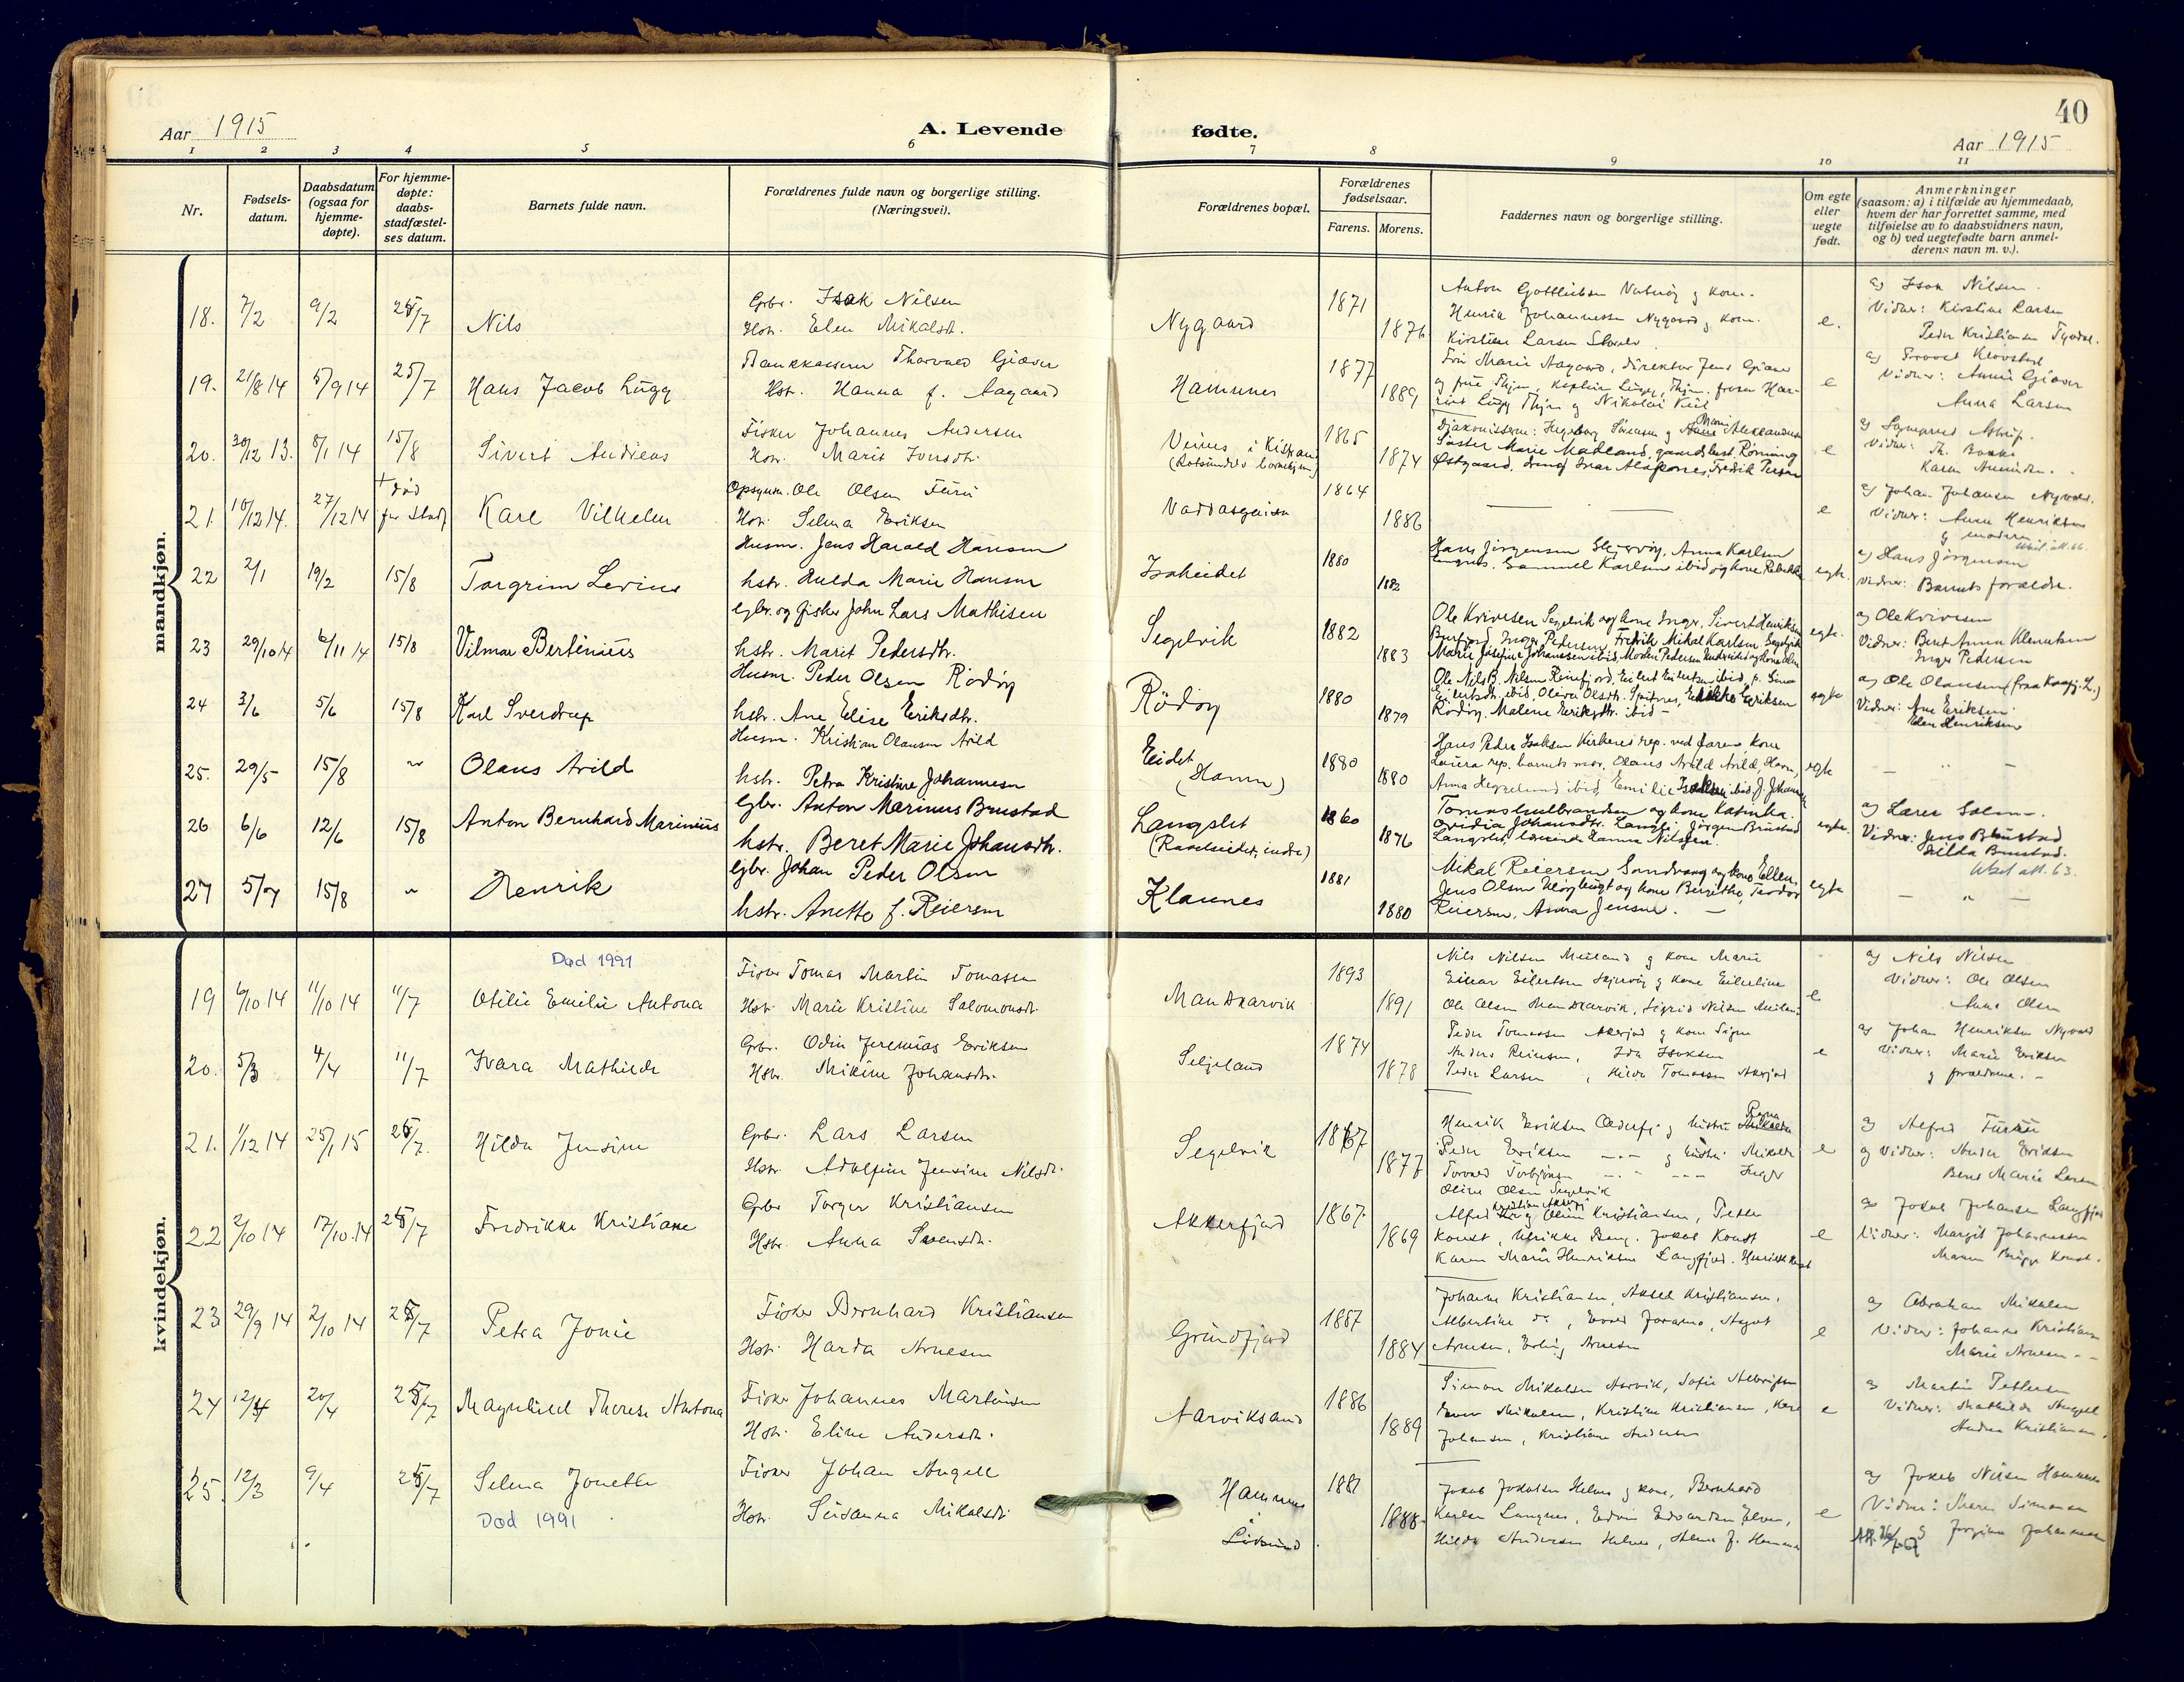 40
Aar 1915
A. Levende fødte.
Aar 1915
1 2 3 4 5 6 7 8 9 10 11
Nr.
Fødsels-
datum.
Daabsdatum
(ogsaa for
hjemme-
døpte).
For hjemme-
døpte:
daabs-
stadfæstel-
ses datum.
Barnets fulde navn.
Forældrenes fulde navn og borgerlige stilling.
(Næringsvei).
Forældrenes bopæl.
Forældrenes
fødselsaar.
Farens. Morens.
Faddernes navn og borgerlige stilling.
Om egte
eller
uegte
født.
Anmerkninger
(saasom: a) i tilfælde av hjemmedaab,
hvem der har forrettet samme, med
tilføielse av to daabsvidners navn,
og b) ved uegtefødte barn anmel-
derens navn m. v.).
mandkjøn.
18. 7/2 9/2 25/7 Nils
Gbr. Isak Nilsen
Hstr. Elen Mikalsdtr.
Nygaard 1871 1876
Henrik Johannessen Nygaard og kone.
Kirstine Larsen
e.
a) Isak Nilsen
Vidner: Kirstine Larsen
Peder Kristiansen
19. 21/8 14 5/9 14 25/7 Hans Jacob Lugg
Bankkasserer Thorvald Giæver
Hst. Hanna f. Aagaard
Hamnnes 1877 1889
Frk Marie Aagaard, Direktør Jens Giæver
og frue, Thjem, kaptein Lugg, Thjem, frøken Har-
riet Lugg Thjem og Nikolai Kiil
e
a) Provst
Vidner: Annie Giæver
Anna Larsen
20. 30/12 13. 8/1 14 15/8 Sivert Andreas
Fisker Johannes Andersen
Hstr. Marit Iversdtr.
(Rotsundets barnehjem) 1865 1874
Diakonisserne: Ingeborg Sörensen og Marie Alexandersen
Søster Marie Matland, gaardbest. Rönning
Østgaard, Fredrik
e
a)
Vidner: Th.
Karen
21. 10/12 14. 27/12 14 + död før stadf Karl Vilhelm
Opsynsm. Ole Olsen Furu
Hstr. Selma Eriksen
1864 1886
e
a) Johan Johansen
Vidner: Anna Henriksen
og moderen
22 2/1 19/2 15/8 Torgrim Levins
Husm. Jens Harald Hansen
hstr. Hulda Marie Hansen
Isaheidet 1880 1882
Hans Jörgensen Skjervöy, Anna Karlsen
Samuel Karlsen ibid og kone Rebekka
egte.
a) Hans Jörgensen
Vidner: Barnets forældre.
23 29/10 14 6/11 14 15/8 Vilmar Bertinius
Gbr. og fisker John Lars Mathisen
hstr. Marit Pedersdtr.
Segelvik 1882 1883
Ole Kvivesen Segelvik og kone Inger, Sivert Henriksen
Burfjord, Inger Pedersen, Fredrik Mikal Karlsen Segelvik
Marie Josefine Johannessen ibid, Morten Pedersen
egte.
a) Ole Kvivesen
Vidner: Berit Anna Klemetsen
Inger Pedersen
24 3/6 5/6 15/8 Karl Sverdrup
Husm. Peder Olsen Rödöy
hstr. Ane Elise Eriksdtr.
Rödöy 1880 1879
Ole Nils B. Nilsen Reinfjord, Eilert Eilertsen ibid, p. Lina
Eilertsdtr. ibid, Oline Olsdtr. Spitnes, Eriksen
Rödöy. Malene Eriksdtr. ibid -
egte
a) Ole Olaussen (fra Kaafj. L.)
Vidner: Ane Eriksen
Elen Henriksen
25. 29/5 15/8 " Olaus Arild
Husm. Kristian Olausen Arild
hstr. Petra Kristine Johannesen
Eidet
(Hamn) 1880 1880
Hans Peder Isaksen Kirkenes rep. ved faren, kone
Lovisa rep. barnets mor, Olaus Arild Arild, Havn,
Anna Heggelund ibid, Emilie Isaksen ibid, J. Johansen
egte
- " -
26 6/6 12/6 15/8 Anton Bernhard Marinius
Gbr. Anton Marinus Brustad
hstr. Beret Marie Johansdtr.
Langslet
(Ravelseidet, indre) 1860 1876
Tomas Guldbrandsen og kone Katinka.
Ovidia Johansdtr. Langsl. Jörgen Brustad
Langslet, lærerinde Hanna Nilssen.
egte.
a) Lærer Solem -.
Vidner: Jens Brustad
Hilda Brustad.
27 5/7 15/8 " Henrik
Gbr. Johan Peder Olsen
hstr. Anette f. Reiersen
Klaunes 1881 1880
Mikal Reiersen Sandvang og kone Ellen,
Jens Olsen og kone Berethe, Teodor
Reiersen, Anna Jensen. -
egte
Utsl. att. 63.
- " -
kvindekjøn.
Død 1991
19 6/10 14 11/10 14 11/7 Otilie Emilie Antona
Fisker Tomas Martin Tomassen
Hstr. Marie Kristine Salomonsdtr.
Mandskarvik 1893 1891
Nils Nilsen Meiland og kone Marie
Einar Eilertsen Skjervöy og kone Eilerline
Ole Olsen Mandskarvik, Sigrid Nilsen Meiland
e
a) Nils Nilsen
Vidner: Ole Olsen
Anne Olsen
20. 5/3 4/4 11/7 Ivara Mathilde
Gbr. Odin Jeremias Eriksen
Hstr. Mikine Johansdtr.
Seljeland 1874 1878
Peder Tomassen Akerfjord og kone Signe
Anders Reiersen, Ida Isaksen
Peder Larsen, Hilda Tomassen Akerfjord
e
a) Johan Henriksen
Vidner: Marie Eriksen
og forældrene. -
21. 1/12 14 25/1 15 25/7. Hilda Jensine
Gbr. Lars Larsen
Hstr. Adolfine Jensine Nilsdtr.
Segelvik 1867 1877
Henrik Eriksen og hustru
Peder Eriksen --- og hustru
Torvald --- Inger
Oline Olsen Segelvik
e
a) Alfred
og Vidner: Anders Eriksen
Beret Marie Larsen
22 2/10 14 17/10. 14 25/7 Fredrikke Kristiane
Gbr Torger Kristiansen
Hstr. Anna Svensdtr.
Akkerfjord 1867. 1869
Alfred og Oline Kristiansen, Petter
Konst, Ulrikke Jakob Konst
Karen Marie Henriksen Langfjord.
e
a) Jakob Johansen Langfjord
Vidner: Margit Johannessen
Konst.
23 29/9 14 2/10 14 25/7 Petra Jonie
Fisker Bernhard Kristiansen
Hstr. Harda Arnesen
Grundfjord 1887 1884
Johanne Kristiansen, Aksel Kristiansen,
Albertine do, Aagot
Arnesen, Erling Arnesen
e
a) Abraham Mikalsen
Vidner: Johanne Kristiansen
Marie Arnesen --
24 12/4 20/4 25/7 Magnhild Therese Antona
Fisker Johannes Martinsen
Hstr. Eline Andersdtr.
Aarviksand 1886 1889
Simon Mikalsen Aarvik, Sofie Albrigtsen
Mikalsen, Kristine Kristiansen, Karl
Johansen, Kristiane Andersen
e
a) Martin Pettersen
Vidner: Mathilde Angell
Andrea Kristiansen.
25. 12/3 9/4 25/7 Selma Jonette
Død 1991
Fisker Johan Angell
Hstr. Susanna Mikalsdtr.
Hamnnes
i
1881 1888.
Jakob Jakobsen Helnes og kone, Bernhard
Karlsen Langnes, Edvin Edvardsen Elven,
Hilda Andersen Helnes,
e
a) Jakob Nilsen Hamnnes
Vidner: Maren Simonsen
og Jørgine Johannessen